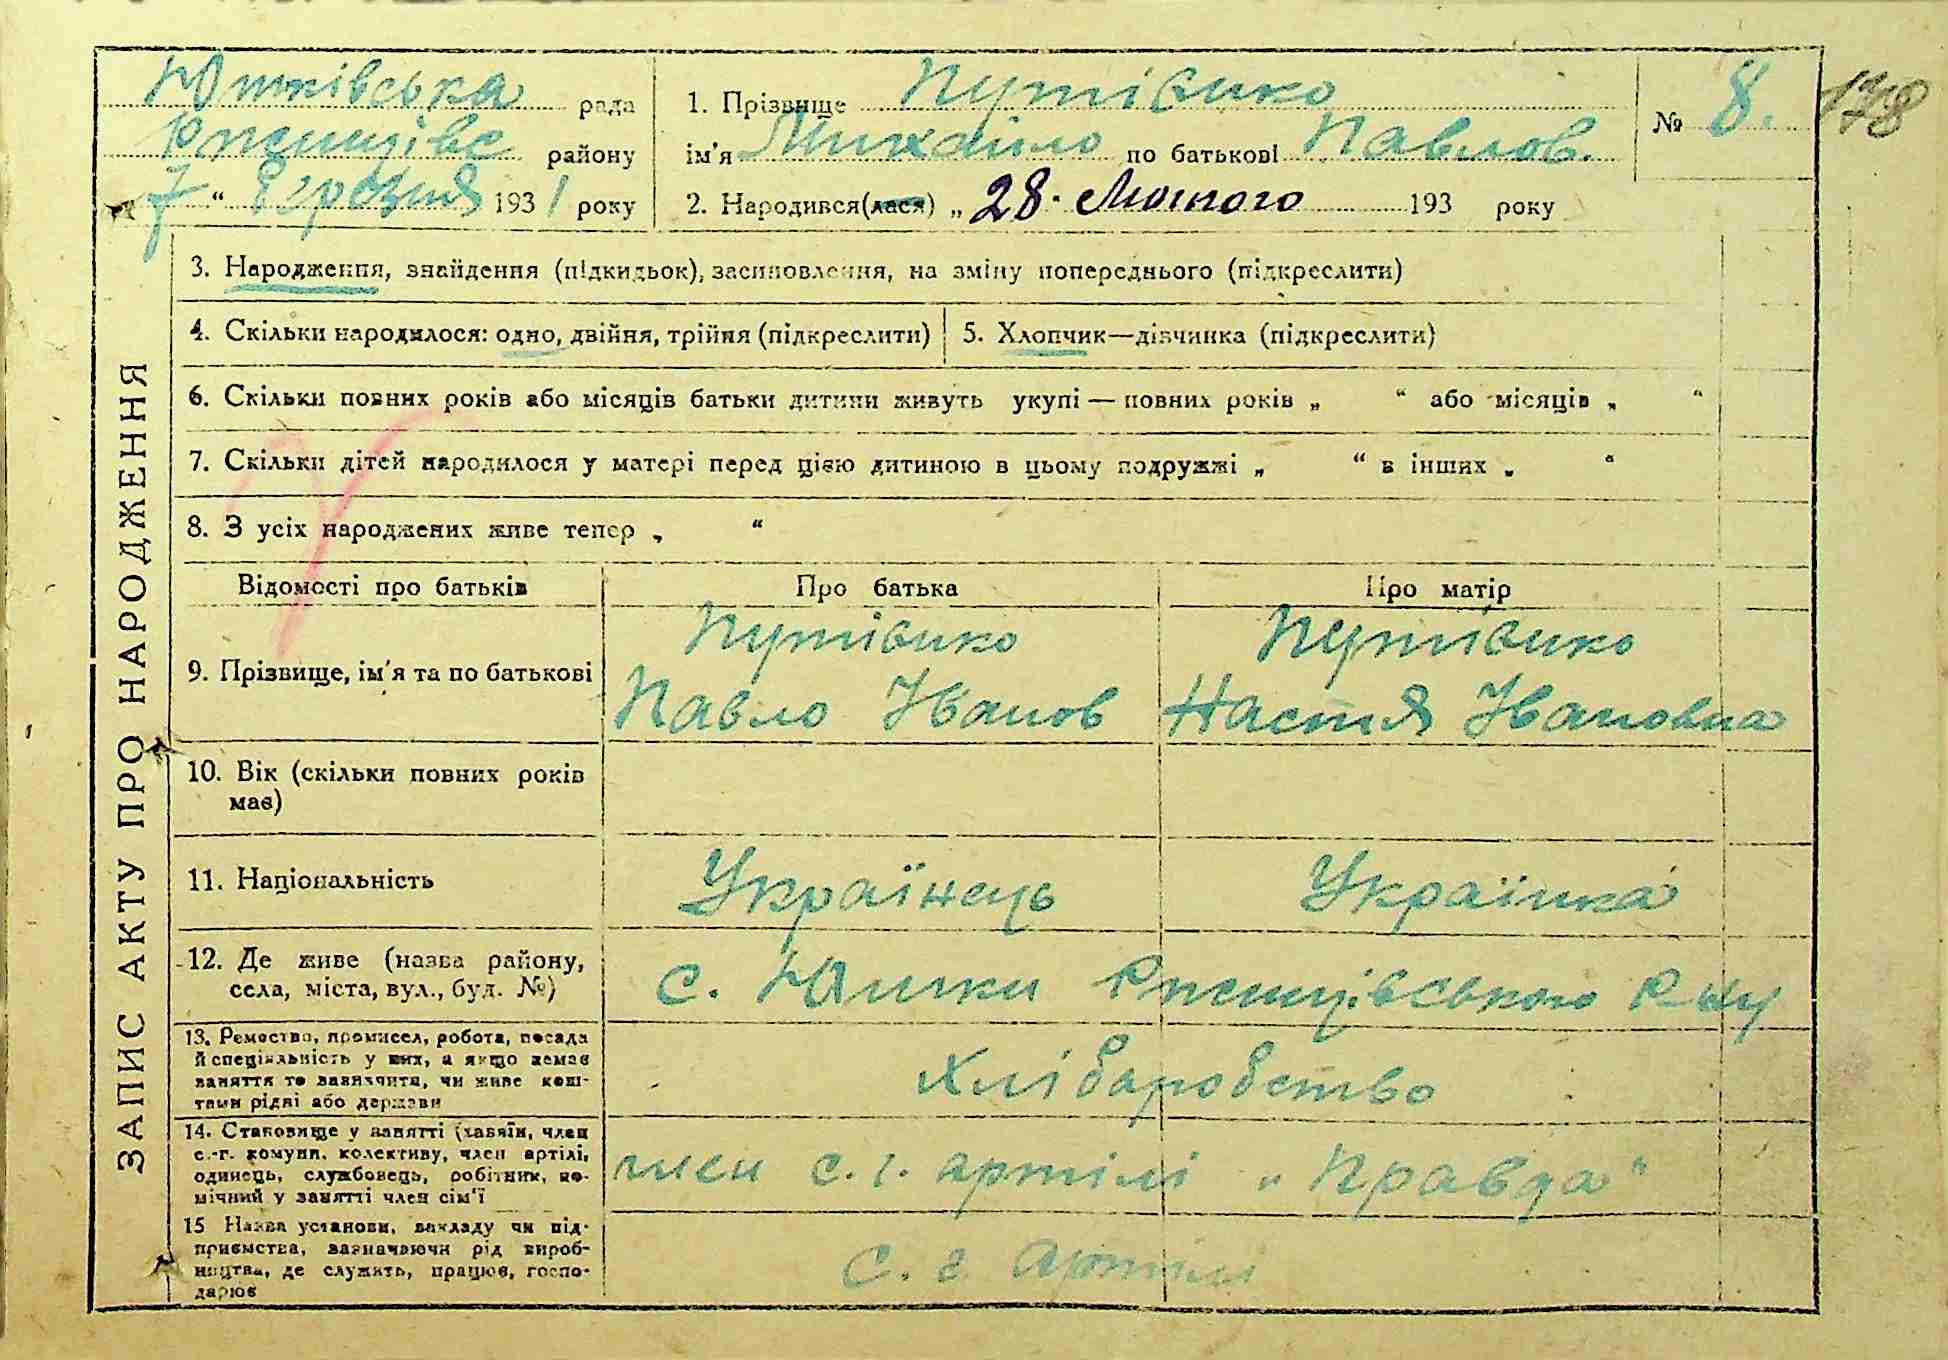 Юшківська рада
Ржищівс району
„ 7 “ Березня 1931 року
1. Прізвище Путівико
ім'я Михайло по батькові Павлов.
2. Народився(лася) „ 28. Лютого 193 року
№ 8.
178
ЗАПИС АКТУ ПРО НАРОДЖЕННЯ
3. Народження, знайдення (підкидьок), засиновлення, на зміну попереднього (підкреслити)
4. Скільки народилося: одно, двійня, трійня (підкреслити)
5. Хлопчик—дівчинка (підкреслити)
6. Скільки повних років або місяців батьки дитини живуть укупі — повних років „ “ або місяців „ “
7. Скільки дітей народилося у матері перед цією дитиною в цьому подружжі „ “ в інших „ “
8. З усіх народжених живе тепер „ “
Відомості про батьків
Про батька
Про матір
9. Прізвище, ім'я та по батькові
Путівико
Павло Іванов
Путівико
Настя Івановна
10. Вік (скільки повних років
має)
11. Національність
Українець
Українка
12. Де живе (назва району,
села, міста, вул., буд. №)
с. Юшки Ржищівського Р-ну
13. Ремество, промисел, робота, посада
й спеціяльність у них, а якщо немає
заняття то зазначити, чи живе кош-
тами рідні або держави
Хліборобство
14. Становище у занятті (хазяїн, член
с.-г. комуни, колективу, член артілі,
одинець, службовець, робітник, по-
мічний у занятті член сім'ї
член с. г. артілі „Правда“
15 Назва установи, закладу чи під-
приємства, зазначаючи рід вироб-
ництва, де служить, працює, госпо-
дарює
с. г. артіль